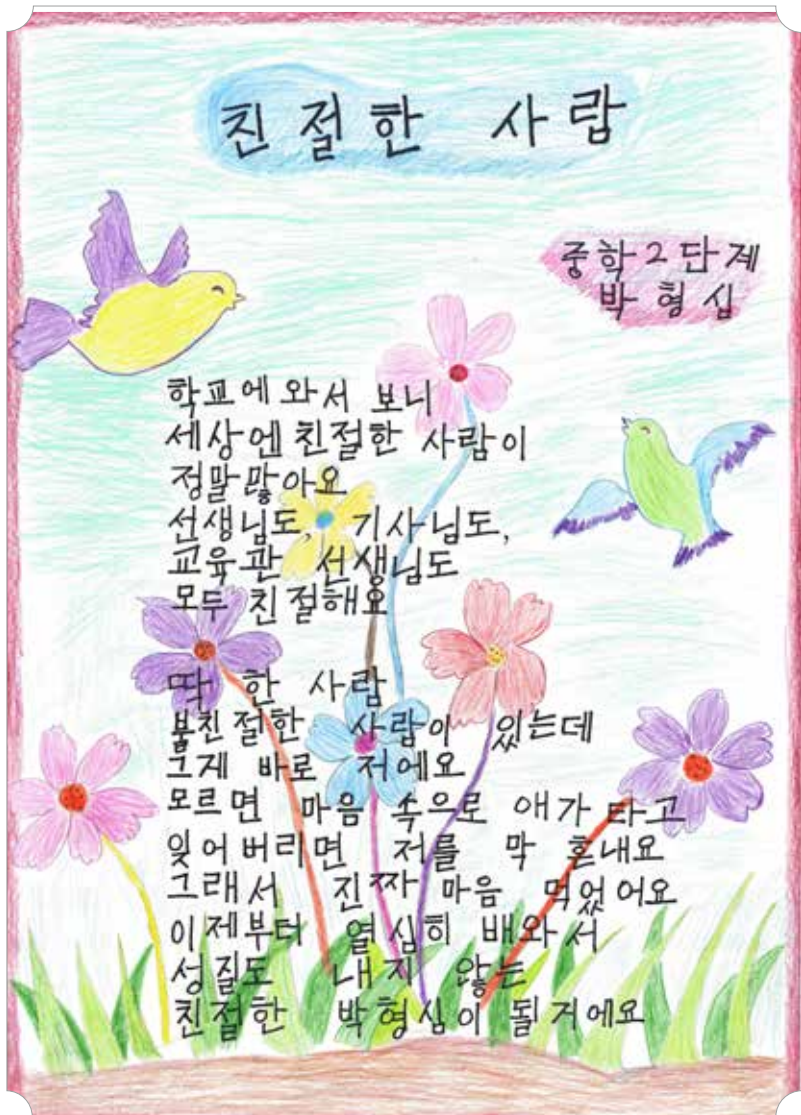 친절한 사랍
중학2단계
박형십
학교에 와서 보니
세상엔 친절한 사람이
정말 많아요
선생님도, 기사님도,
교육관 선생님도
모두 친절해요
딱 한 사람
불친절한 사람이 있는데
그게 바로 저에요
모르면 마음 속으로 애가 타고
잊어버리면 저를 막 혼내요
그래서 진짜 마음 먹었어요
이제부터 열심히 배와서
성질도 내지 않는
친절한 박형심이 될거에요